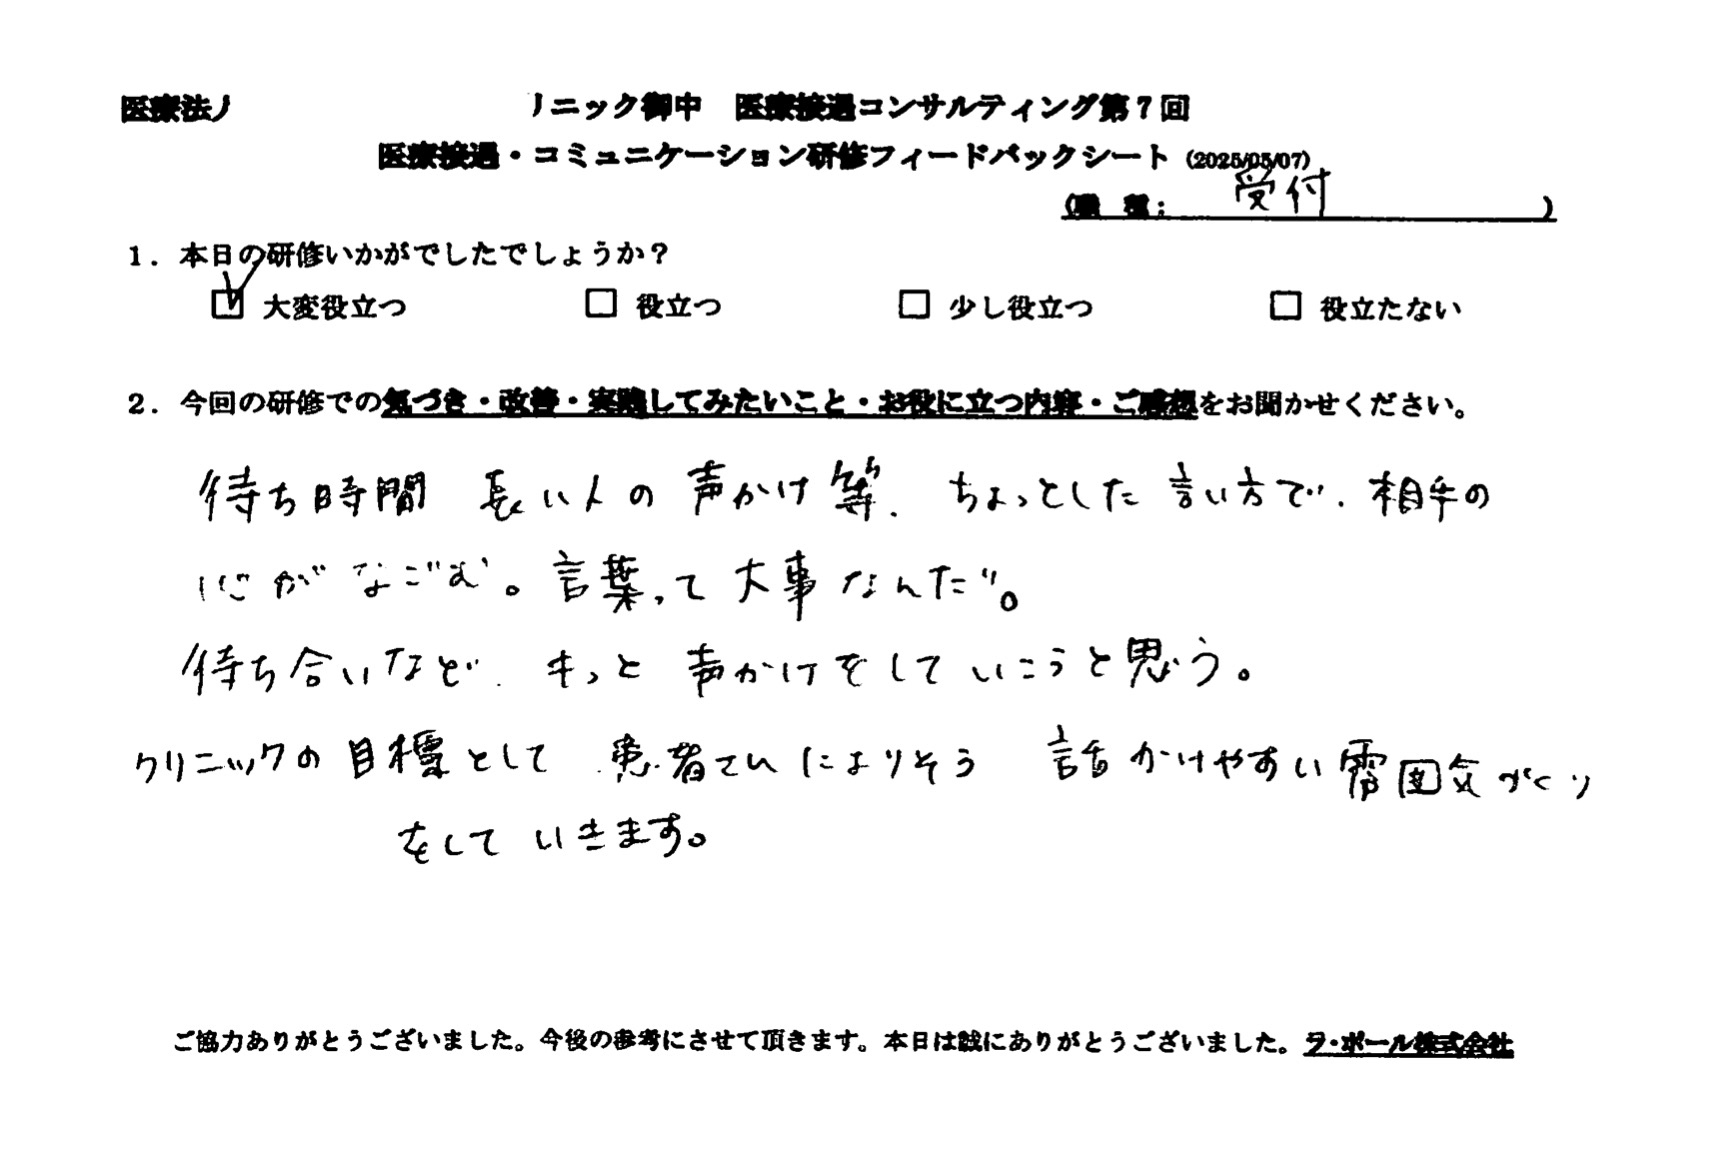 医療法人 リニック御中 医療接遇コンサルティング第7回
医療接遇・コミュニケーション研修フィードバックシート (2025/05/07)
(職 種: 受付 )
1. 本日の研修いかがでしたでしょうか?
☑ 大変役立つ □ 役立つ □ 少し役立つ □ 役立たない
2. 今回の研修での気づき・改善・実践してみたいこと・お役に立つ内容・ご感想をお聞かせください。
待ち時間 長い人の声かけ等、ちょっとした言い方で、相手の
心がなごむ。言葉って大事なんだ。
待ち合いなど、もっと声かけをしていこうと思う。
クリニックの目標として 患者さんによりそう 話かけやすい雰囲気づくり
をしていきます。
ご協力ありがとうございました。今後の参考にさせて頂きます。本日は誠にありがとうございました。ラ・ポール株式会社